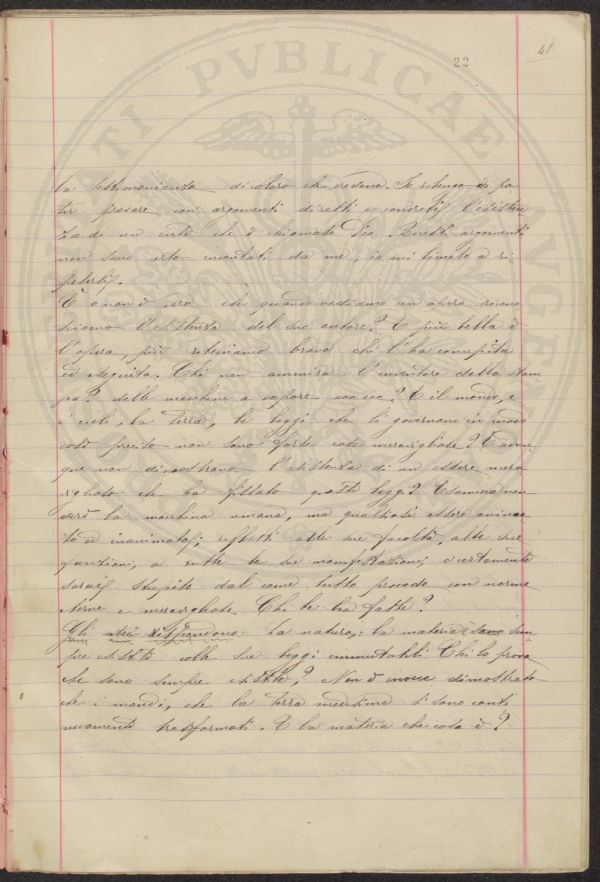 22
41
PVBLICAE
la testimonianza di coloro che vedono. Io ritengo di po-
ter provare con argomenti diretti e concreti l'esisten
za di un ente che è chiamato Dio. Questi argomenti
non sono certo inventati da me, io mi limito a ri-
peterli.
È o non è vero che quando vediamo un'opera ricono
sciamo l'esistenza del suo autore? E più bella è
l'opera, più riteniamo bravo chi l'ha concepita
ed eseguita. Chi non ammira l'inventore della stam-
pa? delle macchine a vapore ecc ecc? E il mondo, e
i cieli, la terra, le leggi che li governano in modo
così preciso non sono forse cose meravigliose? E adun
que non dimostrano l'esistenza di un essere mera
viglioso che ha fissato queste leggi? Esamina non
dirò la macchina umana, ma qualsiasi essere anima
to od inanimato, rifletti alle sue facoltà, alle sue
funzioni, a tutte le sue manifestazioni e certamente
sarai stupito dal come tutto proceda con norme
eterne e meravigliose. Chi le ha fatte?
Gli atei rispondono: la natura, la materia sono sem
pre esistite colle sue leggi immutabili. Chi lo prova
che sono sempre esistite? Non è invece dimostrato
che i mondi, che la terra medesima si sono conti
nuamenti trasformati. E la materia che cosa è?